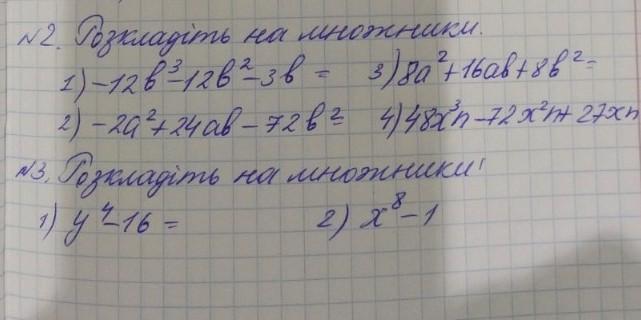 №2. Розкладіть на множники.
1) -12b³-12b²-3b = 3) 8a²+16ab+8b²=
2) -2a²+24ab-72b²= 4) 48x³n-72x²n+27xn
№3. Розкладіть на множники!
1) y⁴-16 = 2) x⁸-1